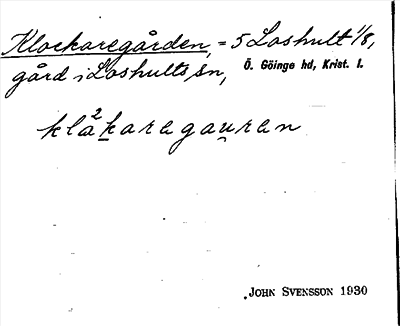 Klockaregården, = 5 Loshult 1/8,
gård i Loshults sn, Ö. Göinge hd, Krist. l.
klå²karegau̯ren
John Svensson 1930